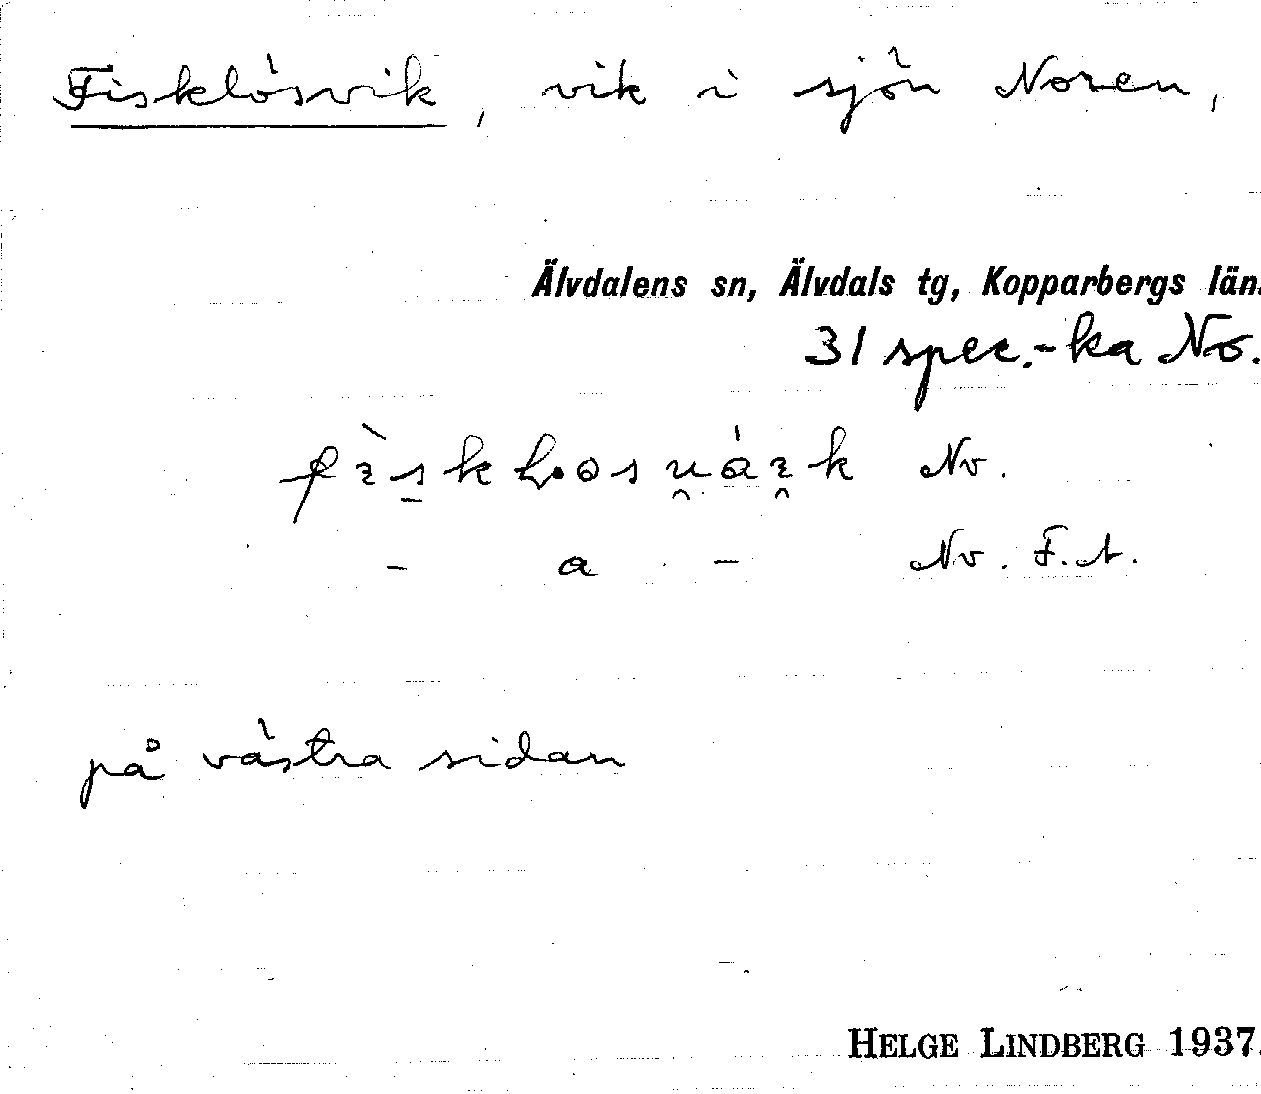 Fisklösvik, vik i sjön Noren,
Älvdalens sn, Älvdals tg, Kopparbergs län.
31 spec.-ka No.
Nv.
- a - Nv. F.A.
på västra sidan
HELGE LINDBERG 1937.